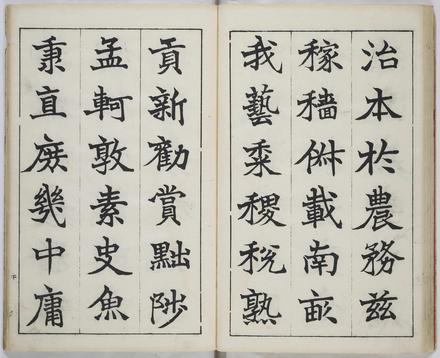 治本於農務兹
稼穡俶載南畝
我藝黍稷稅熟
貢新勸賞黜陟
孟軻敦素史魚
秉直庶幾中庸